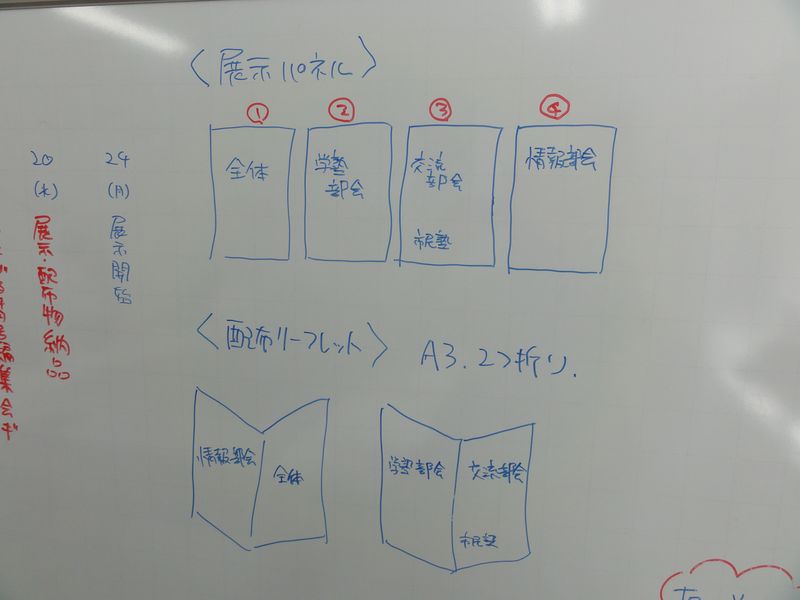 〈展示パネル〉
① ② ③ ④
全体
学塾
部会
交流
部会
市民塾
情報部会
24
(月)
展示開始
20
(水)
展示・配布物納品
〈配布リーフレット〉 A3.2つ折り.
情報部会
全体
学塾部会
交流部会
市民塾